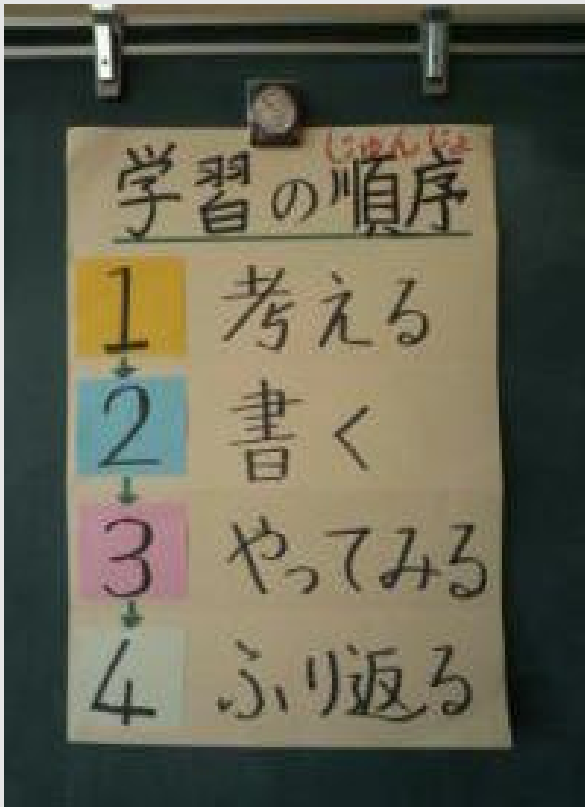 じゅんじょ
学習の順序
1 考える
2 書く
3 やってみる
4 ふり返る